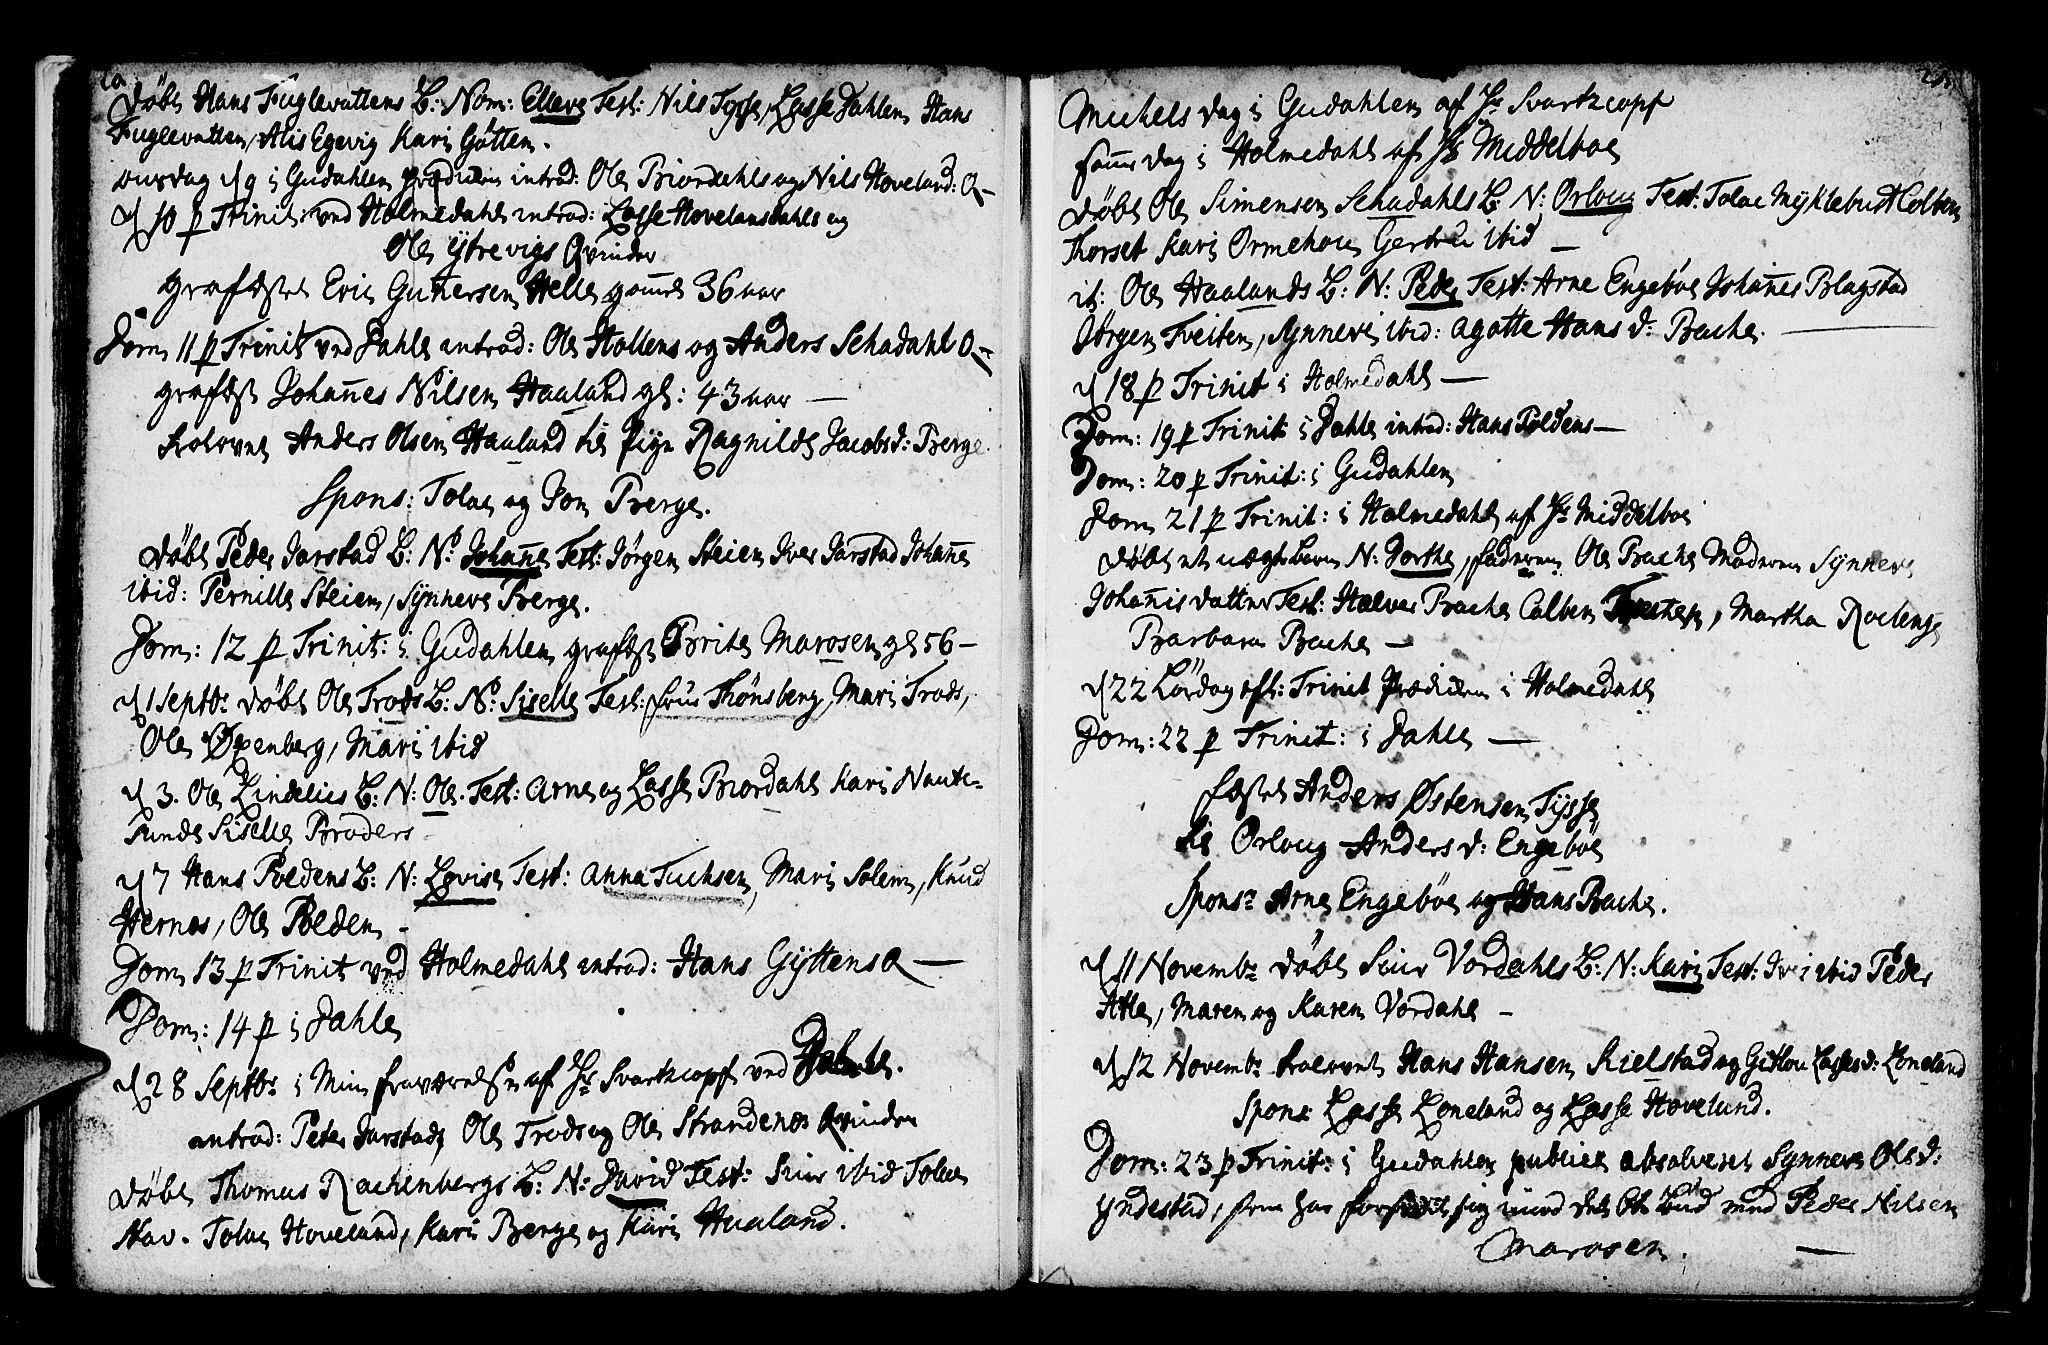 20
Döbt Hans Fuglevattens B: Nom: Ellevs Test: Nils Tysse, Lasse Dahlen, Hans
Fuglevatten, Alis Egevig Kari Götten.
onsdag d 9 i Gudahlen introd: Ole Biordahls og Nils Hoveland: Q –
d 10 p Trinit: ved Holmedahl introd: Lasse Hovelansdahls og
Ole Ytrevigs Qvinder
grafæstet Eric Gunersen Helle gaml 36 aar
Dom 11 p Trinit ved Dahle introd: Ole Hollens og Anders Schadahl Q –
grafæst Johannes Nilsen Haaland gl: 43 aar –
trolovet Anders Olsen Haaland til Pige Ragnilde Jacobsd: Berge.
Spons: Tolue og Jon Berge.
döbt Peder Jarstad B: N: Johanne Test: Jörgen Steien Iver Jarstad Johanne
ibid: Pernille Steien, Synneve Berge.
Dom: 12 p Trinit: i Gudahlen grafæst Brite Marosen gl 56 –
d 1 Septbr döbt Ole Trods B: N: Siselle Test: frue Thönsberg, Mari Trods,
Ole Øxenberg, Mari ibid
d 3. Ole Lindelies B: N: Ole. Test: Arne og Lasse Biordahl Kari Naute-
Sunde Siselle Broders –
d 7 Hans Poldens B: N: Lovise Test: Anna Fuchsen, Mari Solem, Knud
Hernes, Ole Polden –
Dom 13 p Trinit ved Holmedahl introd: Hans Gyttens Q –
Dom: 14 p i Dahle
d 28 Septbr i Min fraværelse af Hr Svartzcopf ved
introd: Peder Jarstads, Ole Trods og Ole Strandenes Qvinder
döbt Thomas Rachenbergs B: N: David Test: Siur ibid Tolue
Nav. Tolue Hoveland, Kari Berge og Kari Haaland.
21
Michels dag i Gudahlen af Hr Svartzcopf
samme dag i Holmedahl af Hr Middelboe
döbt Ole Simensen Schadahls B: N: Orloug Test: Tolue Myklebust Colben
Thorset Kari Ormehou Gertru ibid –
it: Ole Haalands B: N: Peder Test: Arne Engeböe Johannes Blagstad
Jörgen Tveiten, Synneve ibid: Agatte Hans d: Bache. –
d 18 p Trinit i Holmedahl –
Dom: 19 p Trinit: i Dahle introd: Hans Poldens –
Dom: 20 p Trinit: i Gudahlen
Dom 21 p Trinit: i Holmedahl af Hr Middelboe
döbt et uægte barn N: Dorthe, faderen Ole Bache Moderen Synneve
Johannis datter Test: Halver Bache Colben, Martha
Barbara Bache –
d 22 Lördag eft: Trinit Prædiken i Holmedahl
Dom: 22 p Trinit: i Dahle –
fæstet Anders Østensen Tysse
til Orloug Anders d: Engeböe
Spons: Arne Engeböe og Hans Bache.
d 11 Novembr döbt Siur Vordahls B: N: Kari Test: ibid Peder
Atle, Maren og Karen Vordahl –
d 12 Novembr troelovet Hans Hansen Kielstad og Gitlou Lasses d: Loneland
Spons: Lasse Loneland og Lasse Hoveland.
Dom: 23 p Trinit: i Gudahlen publice absolveret Synneve Ols d:
Yndestad, som har forseet sig imod det 6te bud med Peder Nilsen
Marosen. –